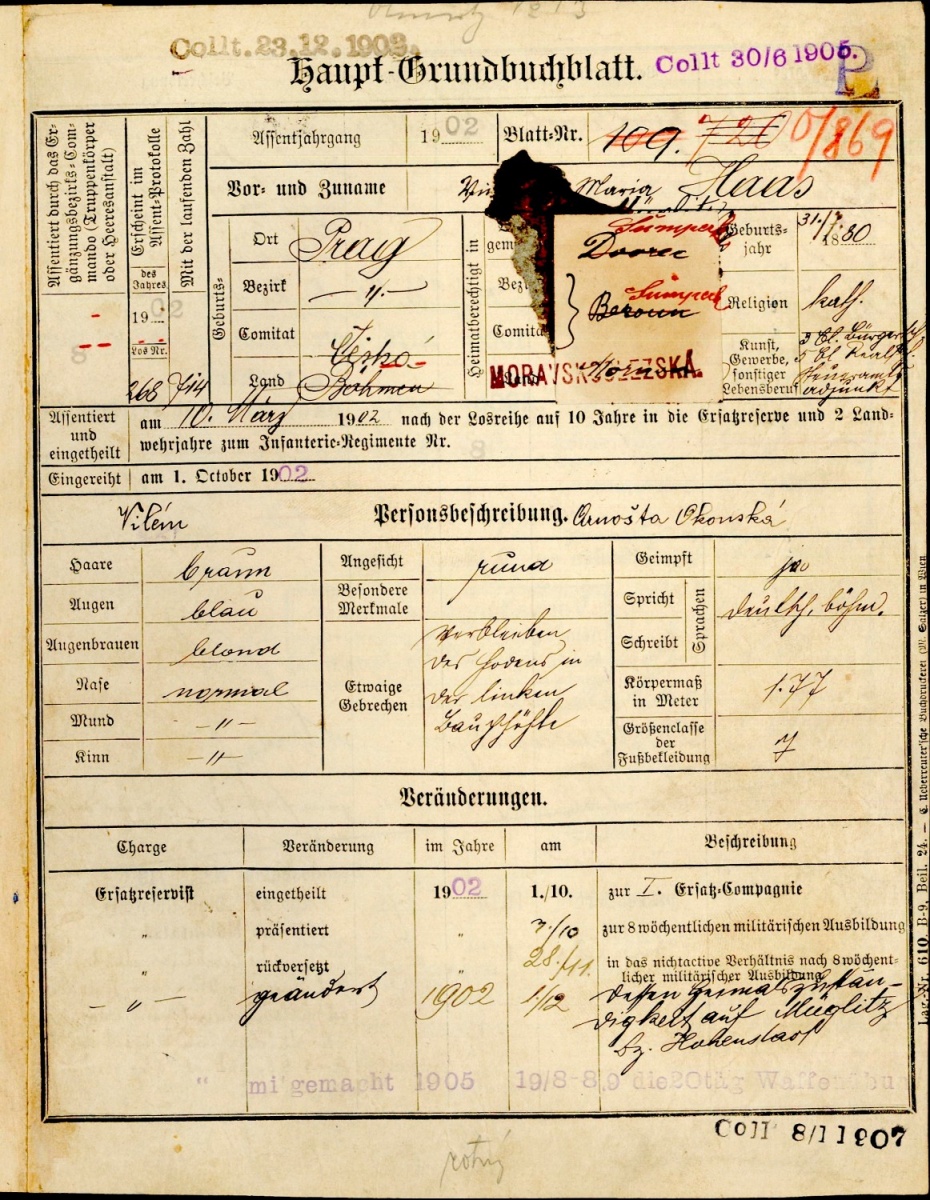 Collt. 23.12.1903.
Haupt-Grundbuchblatt.
Collt 30/6 1905.
Assentiert durch das Er-
gänzungsbezirks-Com-
mando (Truppenkörper
oder Heeresanstalt)
Erscheint im
Assent-Protokolle
des
Jahres
1902
Los Nr.
Mit der laufenden Zahl
268 714
Assentjahrgang 1902
Blatt-Nr. 109. 0/869
Vor- und Zuname Maria Haas
Geburts-
Ort Prag
Bezirk
Comitat
Land Böhmen
Heimatberechtigt in
Šumperk
Šumperk
Beroun
MORAVSKOSLEZSKÁ.
Geburts-
jahr 1880
Religion kath.
Kunst,
Gewerbe,
sonstiger
Lebensberuf
Assentiert
und
eingetheilt
am 10. März 1902 nach der Losreihe auf 10 Jahre in die Ersatzreserve und 2 Land-
wehrjahre zum Infanterie-Regimente Nr.
Eingereiht am 1. October 1902
Vilém Personsbeschreibung. Arnošta Okonská
Haare braun
Augen blau
Augenbrauen blond
Nase normal
Mund -〃-
Kinn -〃-
Angesicht rund
Besondere
Merkmale
Etwaige
Gebrechen
Verbleiben
des Hodens in
der linken
Bauchhöhle
Geimpft ja
Spricht
Schreibt
Sprachen
deutsch, böhm.
Körpermaß
in Meter 1.77
Größenclasse
der
Fußbekleidung
Veränderungen.
Charge Veränderung im Jahre am Beschreibung
Ersatzreservist eingetheilt 1902 1./10. zur I. Ersatz-Compagnie
〃 präsentiert 〃 7/10 zur 8 wöchentlichen militärischen Ausbildung
〃 rückversetzt 〃 28./11. in das nichtactive Verhältnis nach 8 wöchent-
licher militärischer Ausbildung
-〃- geändert 1902 1/12 dessen Heimatszustän-
digkeit auf Müglitz
bz. Hohenstadt
〃 mi'gemacht 1905 19/8-8/9 die 20täg Waffenübu
Coll 8/1 1907
rotný
Lag.-Nr. 610. B-9, Beil. 24. — C. Ueberreuter'sche Buchdruckerei (M. Salzer) in Wien